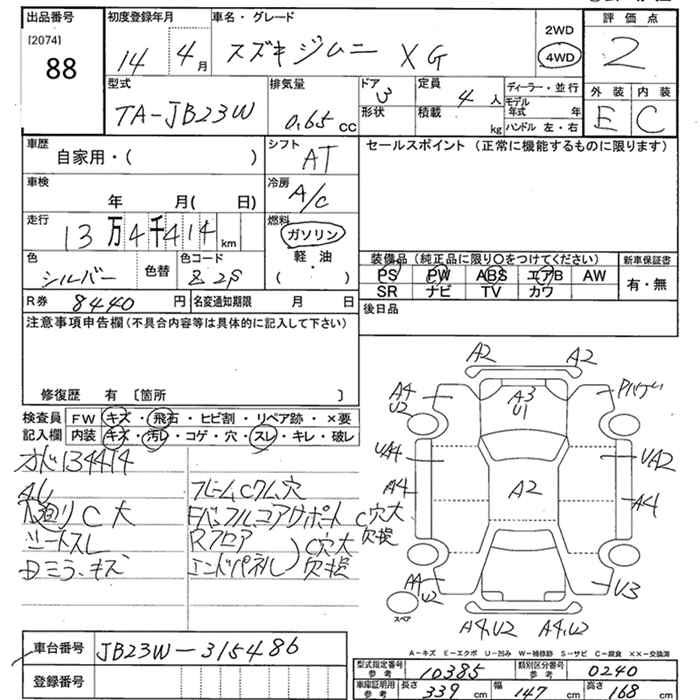 出品番号
[2074]
88
初度登録年月
14 4月
車名・グレード
スズキジムニー XG
2WD
4WD
評価点
2
型式
TA-JB23W
排気量
0.65 cc
ドア
3
形状
定員
4人
積載
kg
ディーラー・並行
モデル年式 年
ハンドル 左・右
外装 内装
E C
車歴
自家用・( )
シフト
AT
セールスポイント (正常に機能するものに限ります)
車検
年 月( 日)
冷房
A/C
走行
13万4千414 km
燃料
ガソリン
軽・油
( )
色
シルバー
色替
色コード
Z2S
装備品(純正品に限り○をつけてください)
PS PW ABS エアB AW
SR ナビ TV カワ
新車保証書
有・無
R券
8440円
名変通知期限 月 日
後日品
注意事項申告欄(不具合内容等は具体的に記入して下さい)
修復歴 有 〔箇所 〕
検査員
記入欄
FW キズ・飛石・ヒビ割・リペア跡・×要
内装 キズ・汚レ・コゲ・穴・スレ・キレ・破レ
オド134414
下廻りC大
シートスレ
Dミラーキズ
フレームC穴
Rフロア
エンドパネル
C穴大
欠損
C穴大
欠損
A2 A2
A4
U2
A3
U1
UA4
A4
A2
UA2
A4
U3
A4
U2
スペア
A4,U2 A4,U2
A-キズ E-エクボ U-凹み W-補修跡 S-サビ C-腐食 ××-交換済
車台番号
JB23W-315486
登録番号
型式指定番号
参考
10385
類別区分番号
参考
0240
車庫証明用
参考
長さ 339 cm
幅 147 cm
高さ 168 cm